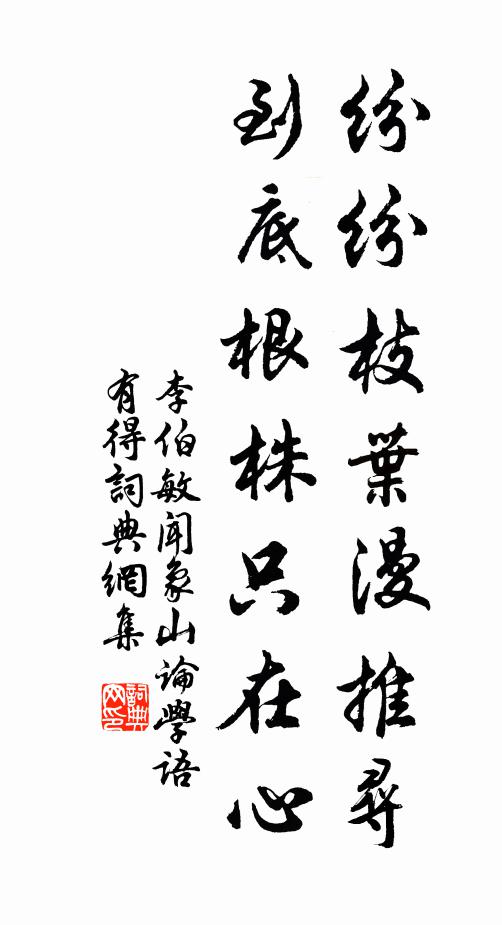 紛紛枝葉漫推尋
到底根株只在心
李伯敏聞象山論學語
有得詞典網集
詞典
网印